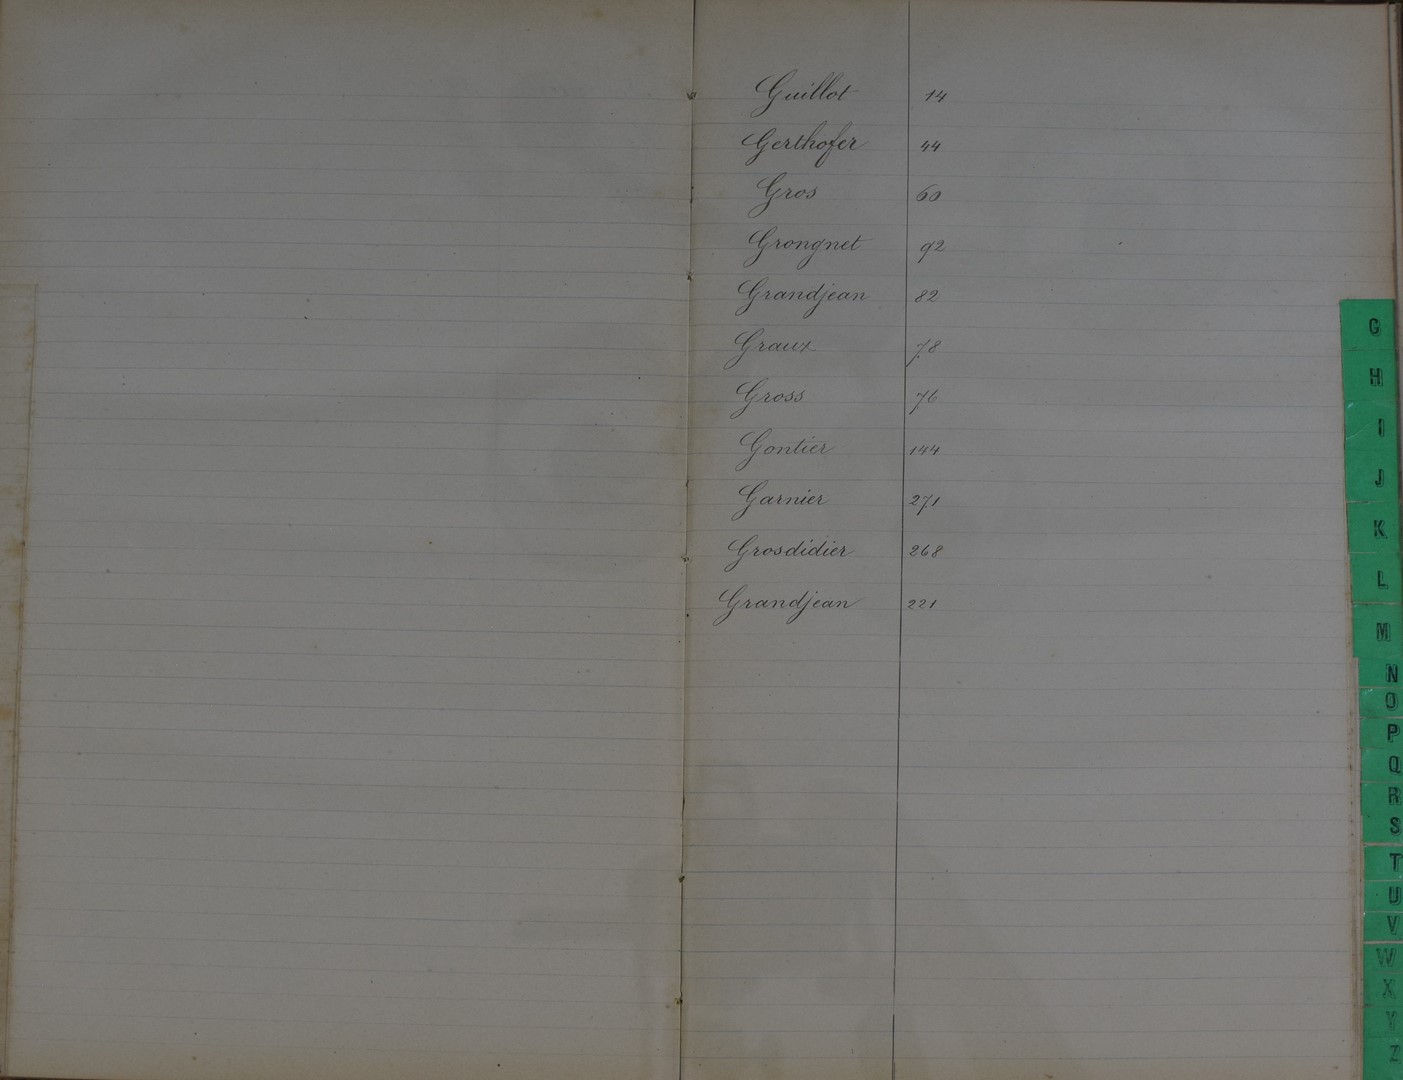 Guillot 14
Gerthofer 44
Gros 60
Grongnet 92
Grandjean 82
Graux 78
Gross 76
Gontier 144
Garnier 271
Grosdidier 268
Grandjean 221
G
H
I
J
K
L
M
N
O
P
Q
R
S
T
U
V
W
X
Y
Z